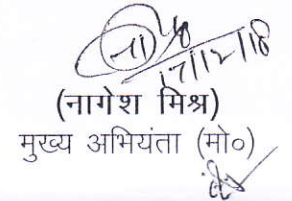 17/12/18
(नागेश मिश्र)
मुख्य अभियंता (मो०)